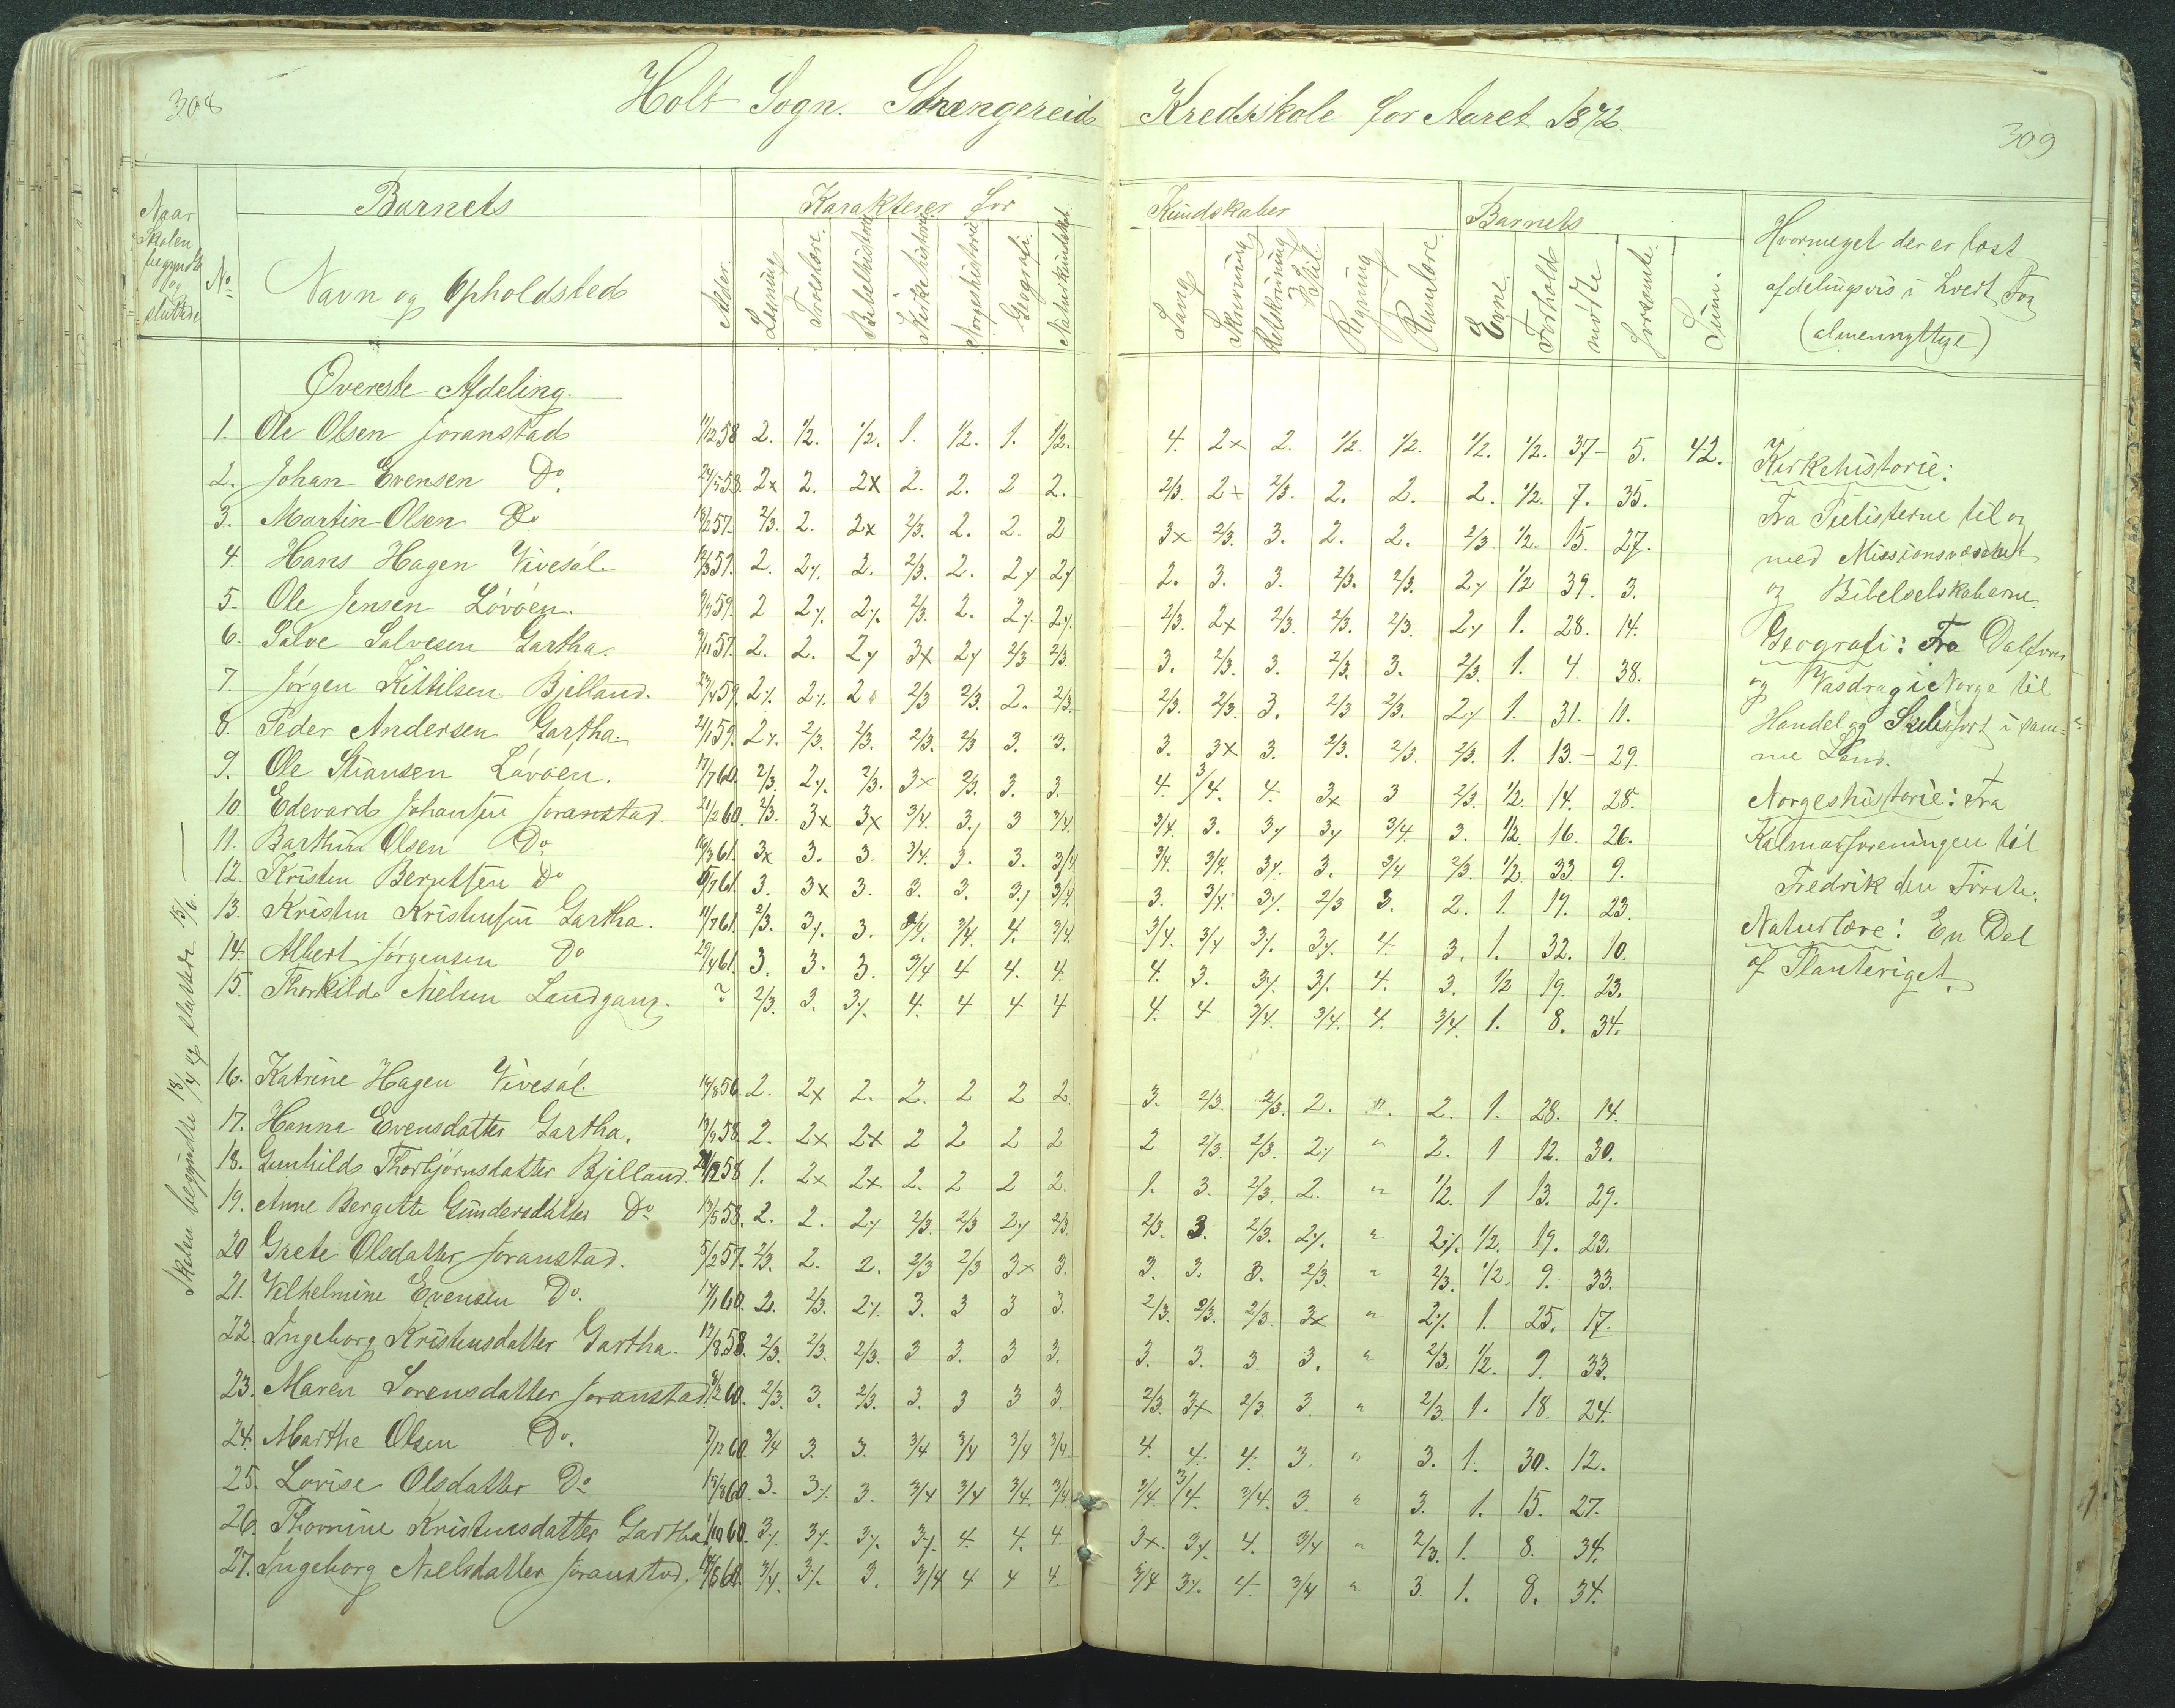 308
Holt Sogn. Strengereid Kredsskole for Aaret 1872
309
Naar Skolen begyndte og sluttede
No
Barnets
Navn og Opholdsted
Alder.
Karakterer for
Læsning
Troeslære.
Bibelhistorie
Kirkehistorie
Norgeshistorie
Geografi.
Naturkundskab
Kundskaber
Sang
Skrivning
Retskrivning & Stil
Regning
Rumlære.
Barnets
Evne.
Forhold
mødte
forsømte.
Sum.
Hvormeget der er læst
afdelingsvis i hvert Fag
(almennyttige)
Øverste Afdeling.
1. Ole Olsen Joranstad 11/2 58 2. 1/2. 1/2. 1. 1/2. 1. 1/2. 4. 2x 2. 1/2. 1/2. 1/2. 1/2. 37- 5. 42.
2. Johan Evensen Do. 24/5 58. 2x 2. 2x 2. 2. 2 2. 2/3. 2x 2/3. 2. 2. 2. 1/2. 7. 35.
3. Martin Olsen Do 57. 2/3. 2. 2x 2/3. 2. 2. 2 3x 2/3. 3. 2. 2. 2/3. 1/2. 15. 27.
4. Hans Hagen Vivesøl. 12/3 57. 2. 2% 2. 2/3. 2. 2% 2% 2. 3. 3. 2/3. 2/3. 2% 1/2 39. 3.
5. Ole Jensen Løvøen. 59. 2 2% 2% 2/3. 2. 2% 2% 2/3. 2x 2/3. 2/3. 2/3. 2% 1. 28. 14.
6. Salve Salvesen Gartha. 57. 2. 2. 2% 3x 2% 2/3 2/3. 3. 2/3. 3. 2/3. 3. 2/3. 1. 4. 38.
7. Jørgen Kittilsen Bjelland. 23/4 59. 2% 2% 2. 2/3 2/3. 2. 2/3. 2/3. 2/3. 3. 2/3 2/3. 2% 1. 31. 11.
8. Peder Andersen Gartha. 21/1 59. 2% 2/3. 2/3. 2/3. 2/3 3. 3. 3. 3x 3. 2/3. 2/3. 2/3. 1. 13.- 29.
9. Ole Stiansen Løvøen. 17/7 60. 2/3. 2% 2/3. 3x 2/3. 3. 3. 4. 3/4. 4. 3x 3 2/3. 1/2. 14. 28.
10. Edevard Johansen Joranstad. 21/2 60. 2/3. 3x 3x 3/4. 3% 3 3/4. 3/4. 3. 3% 3% 3/4. 3. 1/2. 16. 26.
11. Olsen Do 16/3 61. 3x 3. 3. 3/4. 3. 3. 3/4 3/4. 3/4. 3% 3. 3/4 2/3. 1/2. 33 9.
12. Kristen Berntsen Do 61. 3. 3x 3. 3. 3. 3% 3/4. 3. 3/4. 3% 2/3 3. 2. 1. 19. 23.
13. Kristen Kristensen Gartha. 11/7 61. 2/3. 3% 3. 3/4. 3/4. 4. 3/4. 3/4. 3/4 3% 3% 4. 3. 1. 32. 10.
14. Albert Jørgensen Do 29/4 61. 3. 3. 3. 3/4 4 4. 4. 4. 3. 3% 3% 4. 3. 1/2 19. 23.
15. Thorkild Nielsen Landgang. ? 2/3. 3. 3% 4. 4 4 4 4. 4 3/4. 3/4. 4. 3/4. 1. 8. 34.
16. Katrine Hagen Vivesøl 56. 2. 2x 2. 2. 2 2 2. 3. 2/3. 2/3. 2. ". 2. 1. 28. 14.
17. Hanna Evensdatter Gartha. 58. 2. 2x 2x 2 2 2 2 2 2/3. 2/3. 2% " 2. 1 12. 30.
18. Gunhild Thorbjørnsdatter Bjelland. 58 1. 2x 2x 2. 2 2 2. 1. 3. 2/3. 2. " 1/2. 1 13. 29.
19. Anne Bergitte Gundersdatter Do 58. 2. 2. 2% 2/3. 2/3 2% 2/3 2/3. 3. 2/3. 2%. " 2% 1/2. 19. 23.
20 Grete Olsdatter Joranstad. 5/2 57. 2/3. 2. 2. 2/3 2/3 3x 3. 3. 3. 3. 2/3. " 2/3. 1/2. 9. 33.
21. Vilhelmine Evensen Do. 17/1 60. 2. 2/3. 2% 3. 3 3 3. 2/3. 2/3. 2/3. 3x " 2% 1. 25. 17.
22. Ingeborg Kristensdatter Gartha. 12/8 58. 2/3. 2/3. 2/3. 3 3. 3 3. 3. 3. 3. 3. " 2/3. 1/2. 9. 33.
23. Maren Sørensdatter Joranstad 60. 2/3. 3. 2/3. 3. 3 3 3. 2/3. 3x 2/3 3. " 2/3. 1. 18. 24.
24. Marthe Olsen Do. 7/12 60. 3/4 3. 3. 3/4 3/4 3/4 3/4. 4. 4. 4. 3. " 3. 1. 30. 12.
25. Lovise Olsdatter Do 15/8 60. 3. 3% 3. 3/4 3/4 3/4. 3/4. 3/4. 3/4. 3/4. 3. " 3. 1. 15. 27.
26. Thomine Kristensdatter Gartha 1/10 60. 3% 3% 3% 3% 4. 4. 4. 3x 3% 4. 3/4 " 2/3. 1. 8. 34.
27. Ingeborg Nielsdatter Joranstad. 60. 3/4. 3% 3. 3/4 4 4 4. 3/4 3% 4. 3/4 " 3. 1. 8. 34.
Skolen begyndte 18/4 og sluttede 15/6. —
Kirkehistorie:
Fra Pietisterne til og
med Missionsvæsenet
og Bibelselskaberne.
Geografi: Fra Dalfører
og Vasdrag i Norge til
Handel og Skibsfart i sam=
me Land.
Norgeshistorie: Fra
Kalmarforeningen til
Fredrik den Første.
Naturlære: En Del
af Planteriget.